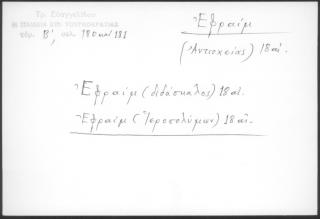 Τρ. Ευαγγελίδου
Η ΠΑΙΔΕΙΑ ΕΠΙ ΤΟΥΡΚΟΚΡΑΤΙΑΣ
τόμ. Β', σελ. 180 και 181
Ἐφραίμ
(Ἀντιοχείας) 18 αἰ.
Ἐφραίμ (διδάσκαλος) 18 αἰ.
Ἐφραίμ (Ἱεροσολύμων) 18 αἰ.